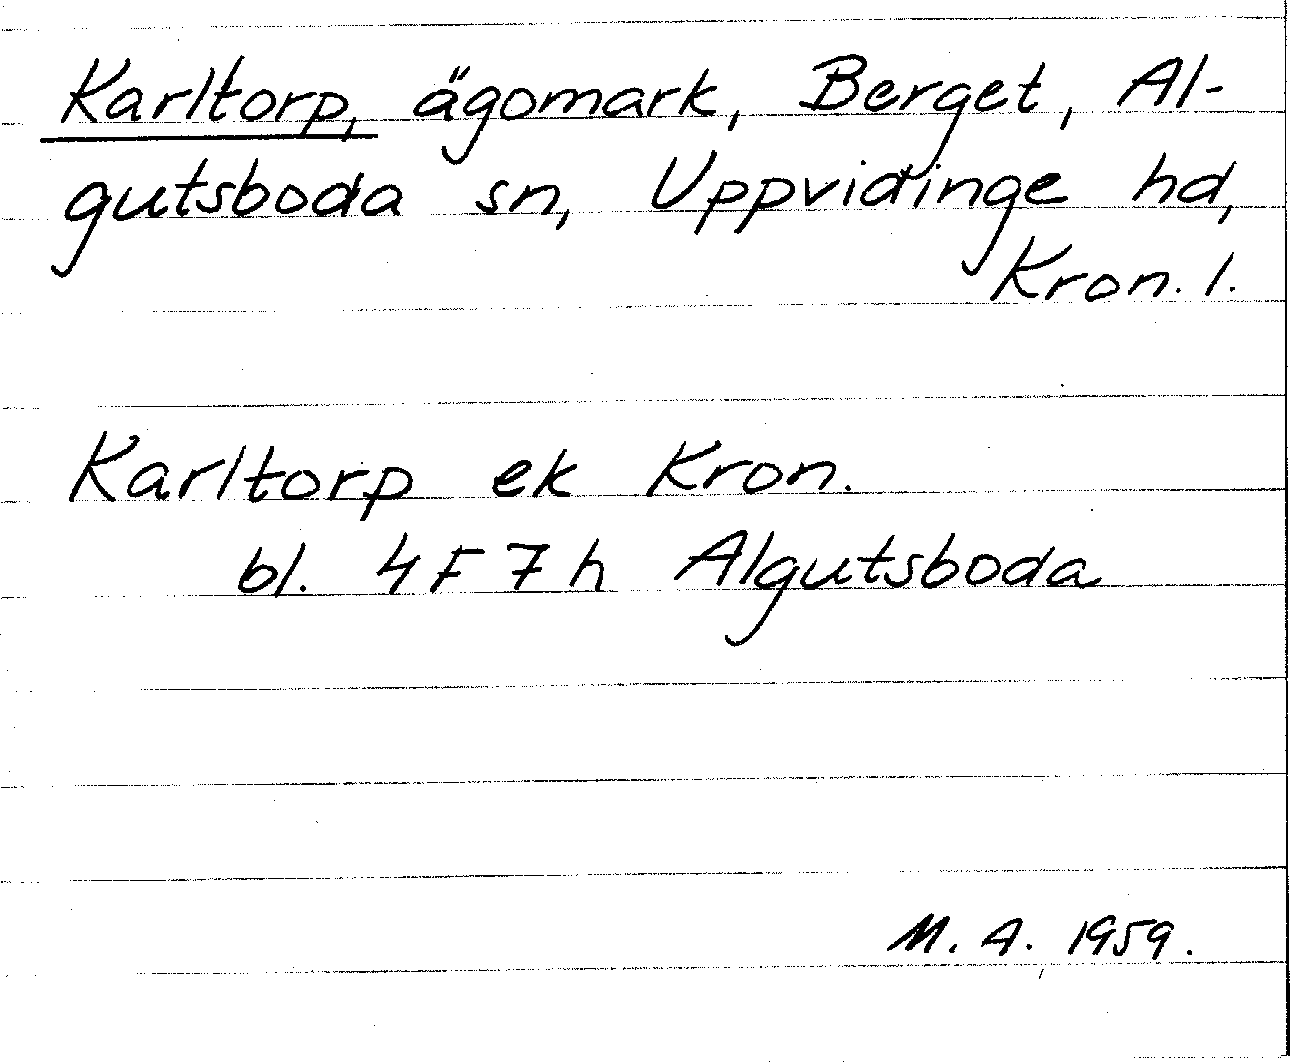 Karltorp, ägomark, Berget, Al-
gutsboda sn, Uppvidinge hd,
Kron. l.
Karltorp ek Kron.
bl. 4F7h Algutsboda
M. A. 1959.